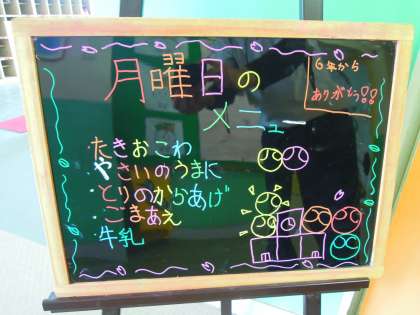 月曜日の
メニュー
6年から
ありがとう!!
たきおこわ
・やさいのうまに
・とりのからあげ
・ごまあえ
・牛乳